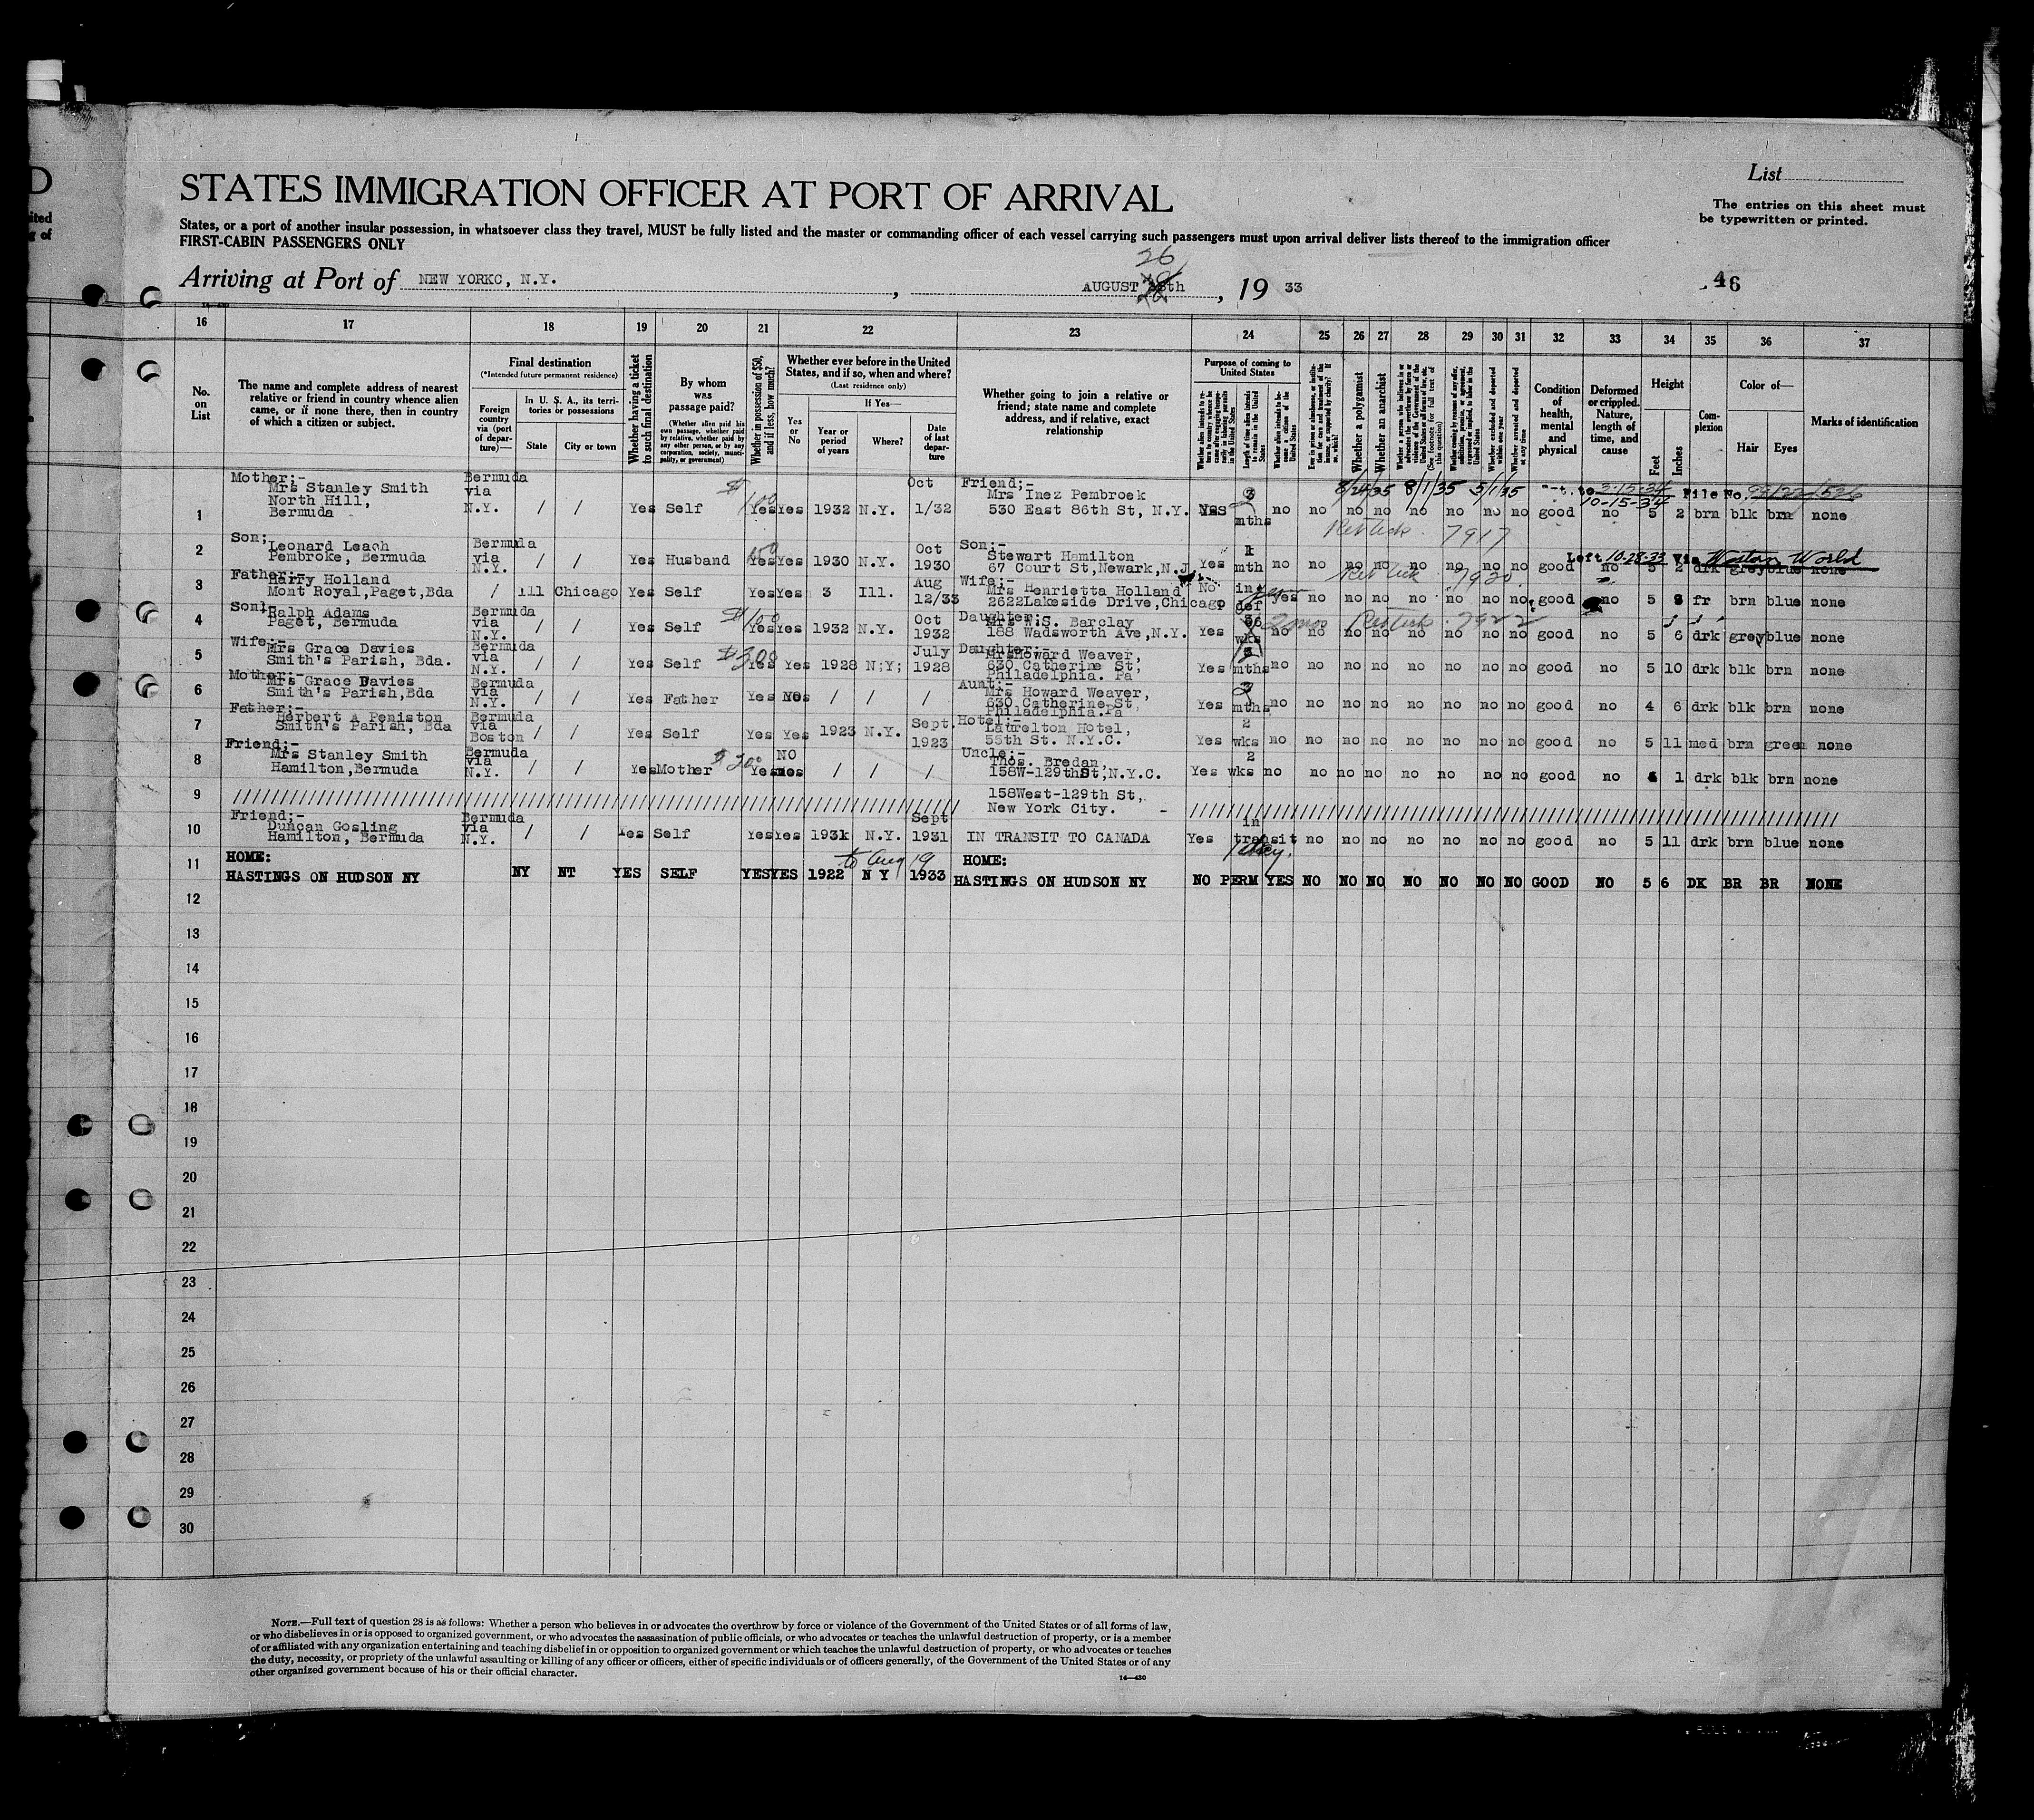 D
ited
g of
List
STATES IMMIGRATION OFFICER AT PORT OF ARRIVAL
The entries on this sheet must
be typewritten or printed.
States, or a port of another insular possession, in whatsoever class they travel, MUST be fully listed and the master or commanding officer of each vessel carrying such passengers must upon arrival deliver lists thereof to the immigration officer
FIRST-CABIN PASSENGERS ONLY
26
Arriving at Port of NEW YORKC, N.Y. , AUGUST , 19 33
46
16 17 18 19 20 21 22 23 24 25 26 27 28 29 30 31 32 33 34 35 36 37
No. on List
The name and complete address of nearest
relative or friend in country whence alien
came, or if none there, then in country
of which a citizen or subject.
Final destination
(*Intended future permanent residence)
Foreign country via (port of departure)—
In U. S. A., its territories or possessions
State
City or town
Whether having a ticket to such final destination
By whom was passage paid?
(Whether alien paid his own passage, whether paid by relative, whether paid by any other person, or by any corporation, society, municipality, or government)
Whether in possession of $50, and if less, how much?
Whether ever before in the United
States, and if so, when and where?
(Last residence only)
Yes or No
If Yes—
Year or period of years
Where?
Date of last departure
Whether going to join a relative or
friend; state name and complete
address, and if relative, exact
relationship
Purpose of coming to United States
Length of time alien intends to remain in the United States
Whether alien intends to become a citizen of the United States
Whether a polygamist
Whether an anarchist
Condition of health, mental and physical
Deformed or crippled. Nature, length of time, and cause
Height
Feet
Inches
Complexion
Color of—
Hair
Eyes
Marks of identification
8/24/35 8/1/35 5/1/35 to 3-15-34 File No. 99122/526
10-15-34
1 Mother;- Mrs Stanley Smith North Hill, Bermuda Bermuda via N.Y. / / Yes Self $100 Yes Yes 1932 N.Y. Oct 1/32 Friend;- Mrs Inez Pembroek 530 East 86th St, N.Y. Yes mths no no no no no no no no good no 5 2 brn blk brn none
7917
Left 10-28-33 Via Western World
2 Son; Leonard Leach Pembroke, Bermuda Bermuda via N.Y. / / Yes Husband 150 Yes Yes 1930 N.Y. Oct 1930 Son;- Stewart Hamilton 67 Court St, Newark, N.J. Yes 1 mth no no no no no no no no good no 5 2 drk grey blue none
7920
3 Father;- Harry Holland Mont Royal, Paget, Bda / Ill Chicago Yes Self Yes Yes 3 Ill. Aug 12/33 Wife;- Mrs Henrietta Holland 2622 Lakeside Drive, Chicago No indef Yes no no no no no no no good no 5 8 fr brn blue none
2 mos 7922
4 Son;- Ralph Adams Paget, Bermuda Bermuda via N.Y. / / Yes Self $100 Yes Yes 1932 N.Y. Oct 1932 Daughter;- Mrs W.S. Barclay 188 Wadsworth Ave, N.Y. Yes wks no no no no no no no no good no 5 6 drk grey blue none
5 Wife;- Mrs Grace Davies Smith's Parish, Bda. Bermuda via N.Y. / / Yes Self $300 Yes Yes 1928 N;Y; July 1928 Daughter;- Mrs Howard Weaver, 630 Catherine St, Philadelphia. Pa Yes mths no no no no no no no no good no 5 10 drk blk brn none
6 Mother;- Mrs Grace Davies Smith's Parish, Bda Bermuda via N.Y. / / Yes Father Yes No / / / Aunt;- Mrs Howard Weaver, 630 Catherine St, Philadelphia. Pa Yes mths no no no no no no no no good no 4 6 drk blk brn none
7 Father;- Herbert A Peniston Smith's Parish, Bda Bermuda via Boston / / Yes Self Yes Yes 1923 N.Y. Sept 1923 Hotel;- Laurelton Hotel, 55th St. N.Y.C. Yes 2 wks no no no no no no no no good no 5 11 med brn green none
8 Friend;- Mrs Stanley Smith Hamilton, Bermuda Bermuda via N.Y. / / Yes Mother $300 Yes NO / / / Uncle;- Thos. Bredan, 158W-129th St, N.Y.C. Yes 2 wks no no no no no no no no good no 1 drk blk brn none
9 158 West-129th St,
New York City. -
10 Friend;- Duncan Gosling Hamilton, Bermuda Bermuda via N.Y. / / Yes Self Yes Yes 1931 N.Y. Sept 1931 IN TRANSIT TO CANADA Yes in transit no no no no no no no good no 5 11 drk brn blue none
to Aug 19
11 HOME: HASTINGS ON HUDSON NY NY NT YES SELF YES YES 1922 N Y 1933 HOME: HASTINGS ON HUDSON NY NO PERM YES NO NO NO NO NO NO NO GOOD NO 5 6 DK BR BR NONE
12
13
14
15
16
17
18
19
20
21
22
23
24
25
26
27
28
29
30
NOTE.—Full text of question 28 is as follows: Whether a person who believes in or advocates the overthrow by force or violence of the Government of the United States or of all forms of law,
or who disbelieves in or is opposed to organized government, or who advocates the assassination of public officials, or who advocates or teaches the unlawful destruction of property, or is a member
of or affiliated with any organization entertaining and teaching disbelief in or opposition to organized government or which teaches the unlawful destruction of property, or who advocates or teaches
the duty, necessity, or propriety of the unlawful assaulting or killing of any officer or officers, either of specific individuals or of officers generally, of the Government of the United States or of any
other organized government because of his or their official character.
14—430